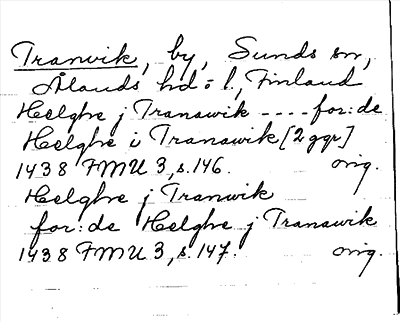 Tranvik, by, Sunds sn,
Ålands hd o. l., Finland
Helghe j Tranawik ---- for: de
Helghe i Tranawik [2 ggr]
1438 FMU 3, s. 146. orig.
Helghe j Tranwik
for: de Helghe j Tranawik
1438 FMU 3, s. 147. orig.